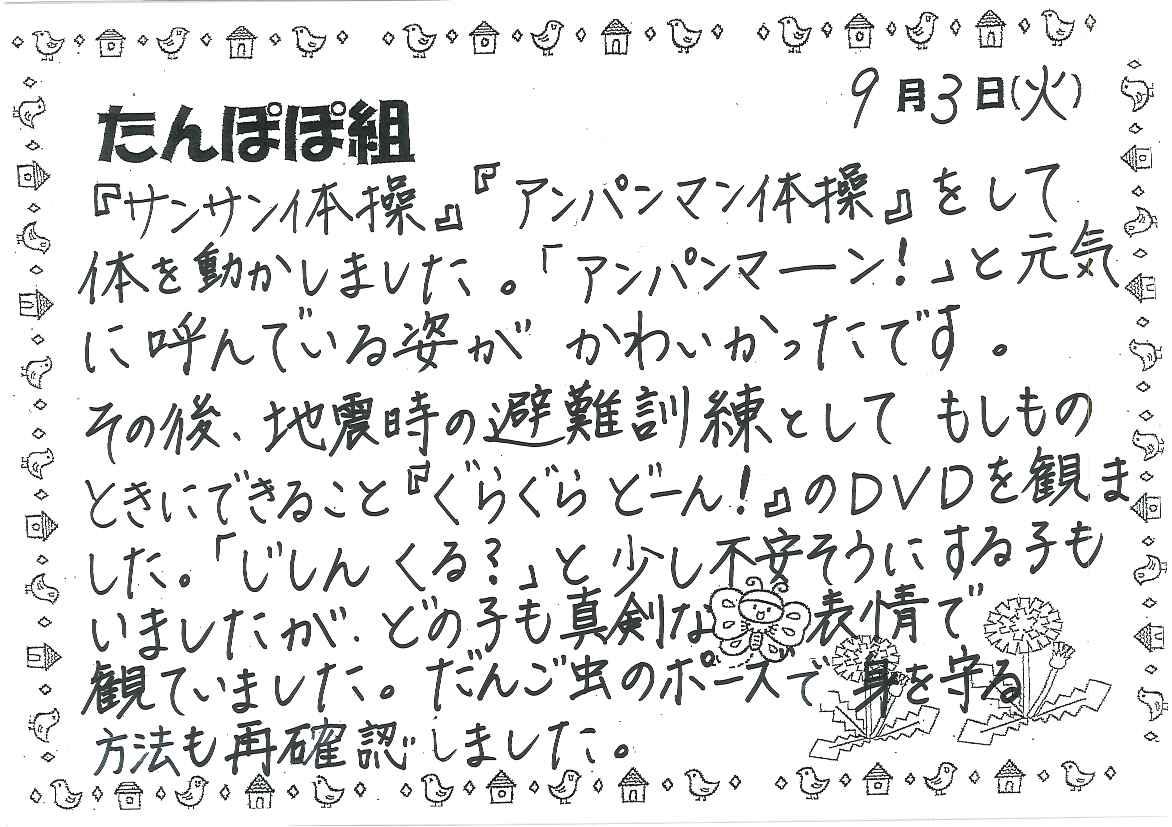 9月3日(火)
たんぽぽ組
『サンサン体操』『アンパンマン体操』をして
体を動かしました。「アンパンマーン!」と元気
に呼んでいる姿が かわいかったです。
その後、地震時の避難訓練として もしもの
ときにできること『ぐらぐら どーん!』のDVDを観ま
した。「じしん くる?」と少し不安そうにする子も
いましたが、どの子も真剣な表情で
観ていました。だんご虫のポーズで身を守る
方法も再確認しました。